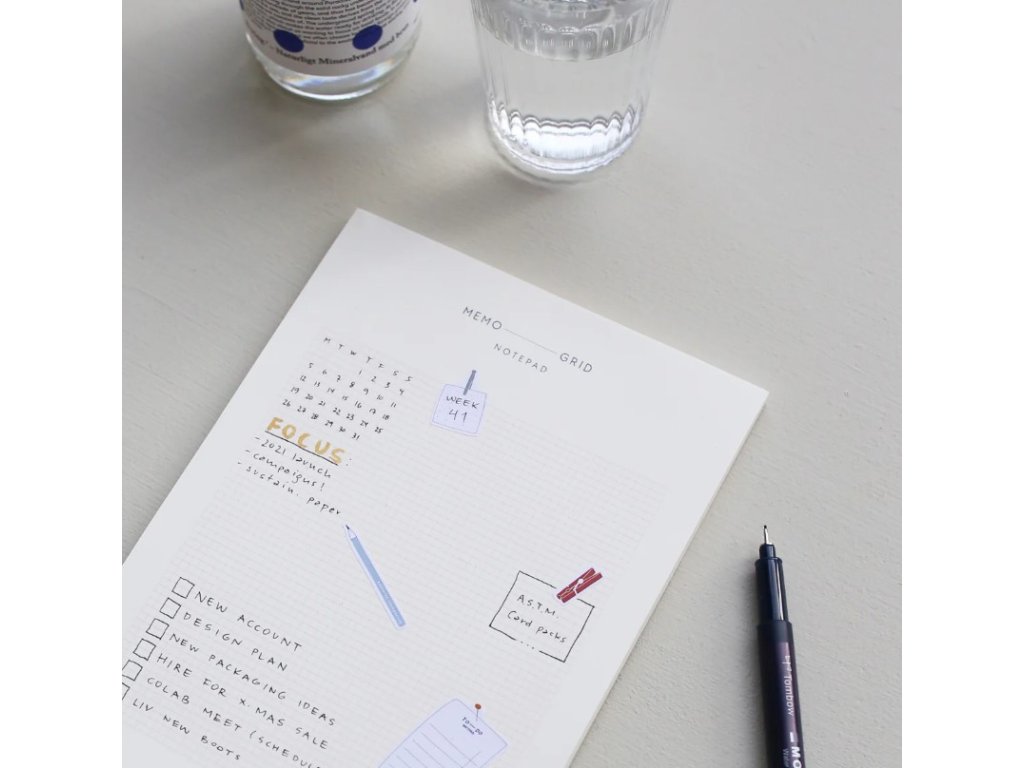 Naturligt Mineralvand med
MEMO GRID
NOTEPAD
M T W T F S S
1 2 3 4
5 6 7 8 9 10 11
12 13 14 15 16 17 18
19 20 21 22 23 24 25
26 27 28 29 30 31
WEEK
41
FOCUS:
- 2021 launch
- campaigns!
- sustain. paper
A.S.T.M.
Card packs
...
NEW ACCOUNT
DESIGN PLAN
NEW PACKAGING IDEAS
HIRE FOR X-MAS SALE
COLAB MEET (SCHEDUL
LIV NEW BOOTS
TO DO
Tombow
MO